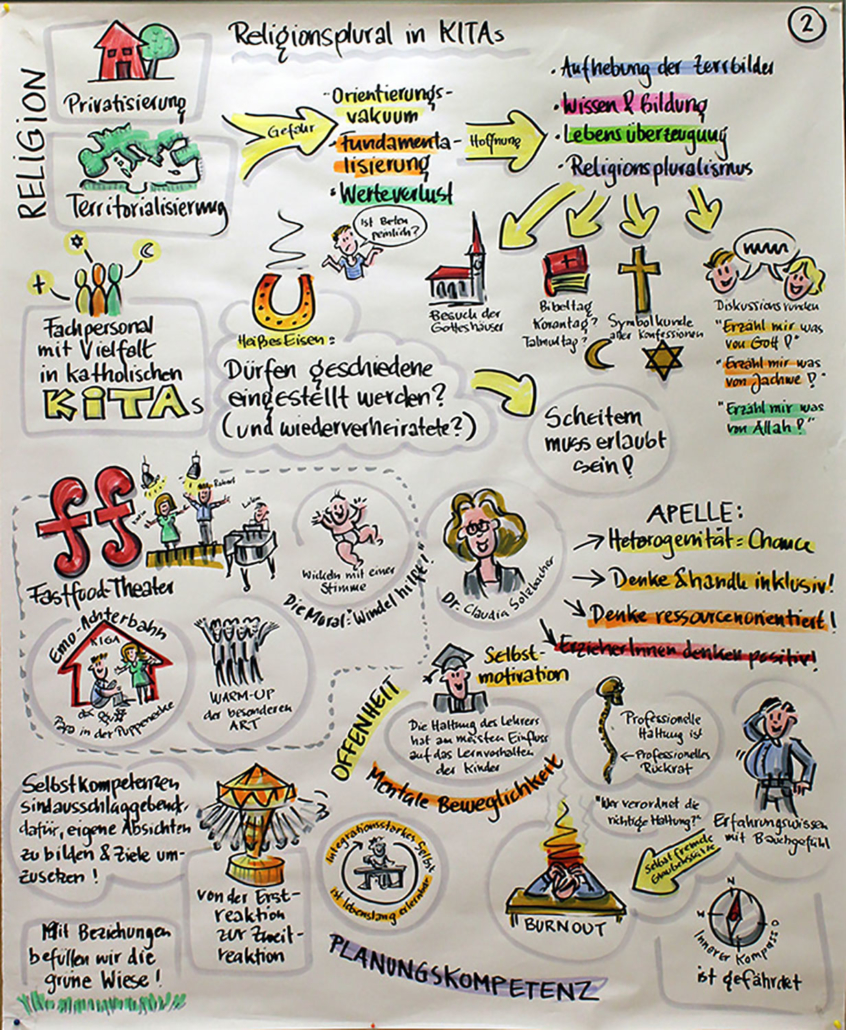 2
Religionsplural in KITAs
RELIGION
Privatisierung
Territorialisierung
Gefahr
- Orientierungs-
vakuum
• Fundamenta-
lisierung
• Werteverlust
Hoffnung
• Aufhebung der Zerrbilder
• Wissen & Bildung
• Lebensüberzeugung
• Religionspluralismus
Ist Beten
peinlich?
Besuch der
Gotteshäuser
Bibeltag
Korantag?
Talmudtag?
Symbolkunde
aller Konfessionen
Diskussionsrunden
"Erzähl mir was
von Gott!"
"Erzähl mir was
von Jachwe!"
"Erzähl mir was
von Allah!"
Fachpersonal
mit Vielfalt
in katholischen
KiTAs
Heißes Eisen:
Dürfen geschiedene
eingestellt werden?
(und wiederverheiratete?)
Scheitern
muss erlaubt
sein!
ff
Fastfood-Theater
Wickeln mit einer
Stimme
Die Moral: "Windel hilft!"
Emo-Achterbahn
KIGA
Papa in der Puppenecke
WARM-UP
der besonderen
ART
Dr. Claudia Solzbacher
APELLE:
→ Heterogenität = Chance
→ Denke & handle inklusiv!
↘ Denke ressourcenorientiert!
↘ ErzieherInnen denken positiv!
Selbst-
motivation
OFFENHEIT
Die Haltung des Lehrers
hat am meisten Einfluss
auf das Lernverhalten
der Kinder
Mentale Beweglichkeit
Professionelle
Haltung ist
← Professionelles
Rückrat
"Wer verordnet die
richtige Haltung?"
Erfahrungswissen
mit Bauchgefühl
Selbstkompetenzen
sind ausschlaggebend,
dafür, eigene Absichten
zu bilden & Ziele um-
zusetzen!
von der Erst-
reaktion
zur Zweit-
reaktion
Integrationsstarkes Selbst
ist lebenslang erlernbar
Selbst fremde
Glaubenssätze
BURNOUT
N
W
O
S
Innerer Kompass
ist gefährdet
Mit Beziehungen
befüllen wir die
grüne Wiese!
PLANUNGSKOMPETENZ